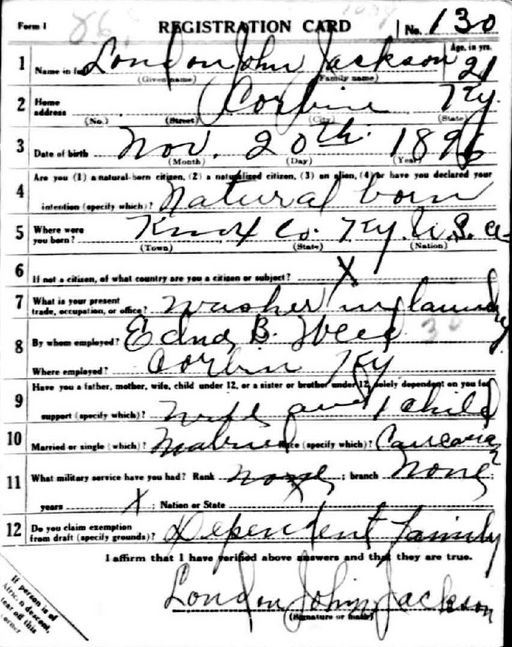 Form 1 REGISTRATION CARD No. 130
1 Name in full London John Jackson Age, in yrs. 21
(Given name) (Family name)
2 Home address Corbin Ky.
(No.) (Street) (City) (State)
3 Date of birth Nov. 20th 1896
(Month) (Day) (Year)
4 Are you (1) a natural-born citizen, (2) a naturalized citizen, (3) an alien, (4) or have you declared your
intention (specify which)? Natural born
5 Where were you born? Knox Co. Ky. U.S.a
(Town) (State) (Nation)
6 If not a citizen, of what country are you a citizen or subject? X
7 What is your present trade, occupation, or office? washer in laundry
8 By whom employed? Edna B.
Where employed? Corbin Ky
9 Have you a father, mother, wife, child under 12, or a sister or brother under 12, solely dependent on you for
support (specify which)? wife and 1 child
10 Married or single (which)? Married Race (specify which)?
11 What military service have you had? Rank none ; branch none ;
years X ; Nation or State
12 Do you claim exemption from draft (specify grounds)? Dependent family
I affirm that I have verified above answers and that they are true.
London John Jackson
(Signature or mark)
If person is of
African descent,
tear off this
corner